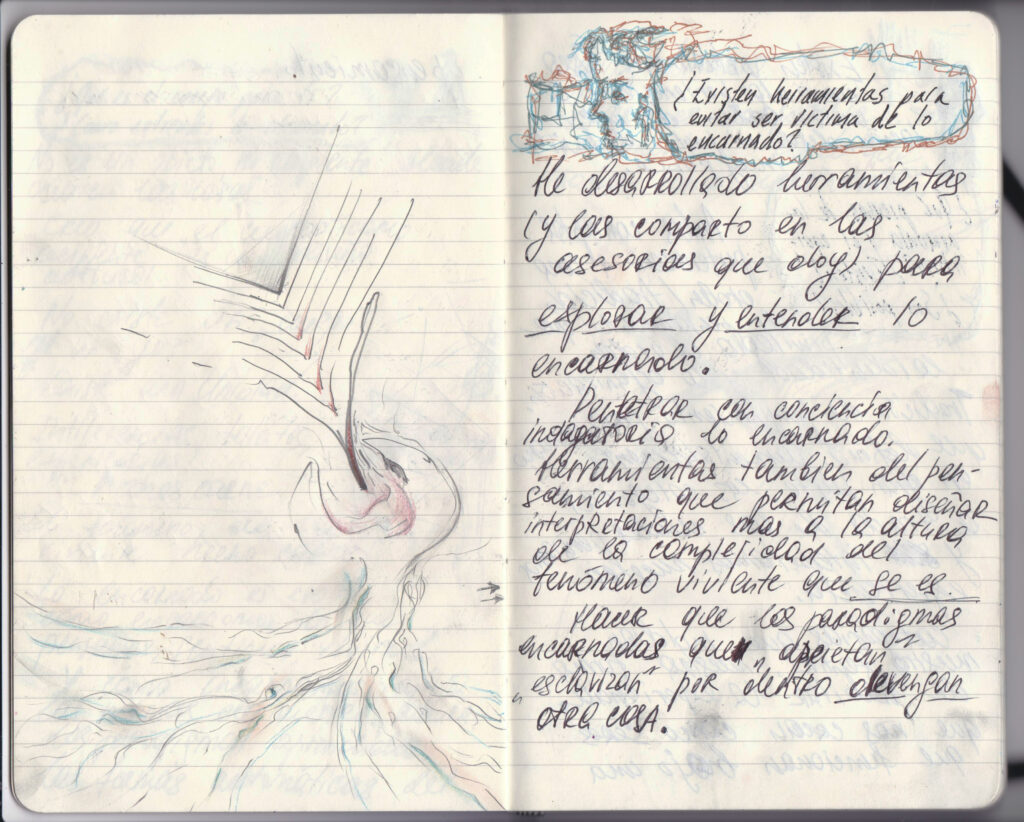 ¿Existen herramientas para
evitar ser victima de lo
encarnado?
He desarrollado herramientas
(y las comparto en las
asesorias que doy) para
explorar y entender lo
encarnado.
Penetrar con conciencia
indagatoria lo encarnado.
Herramientas tambien del pen-
samiento que permitan diseñar
interpretaciones mas a la altura
de la complejidad del
fenómeno viviente que se es.
Hacer que los paradigmas
encarnados que "aprietan"
"esclavizan" por dentro devengan
otra cosa.